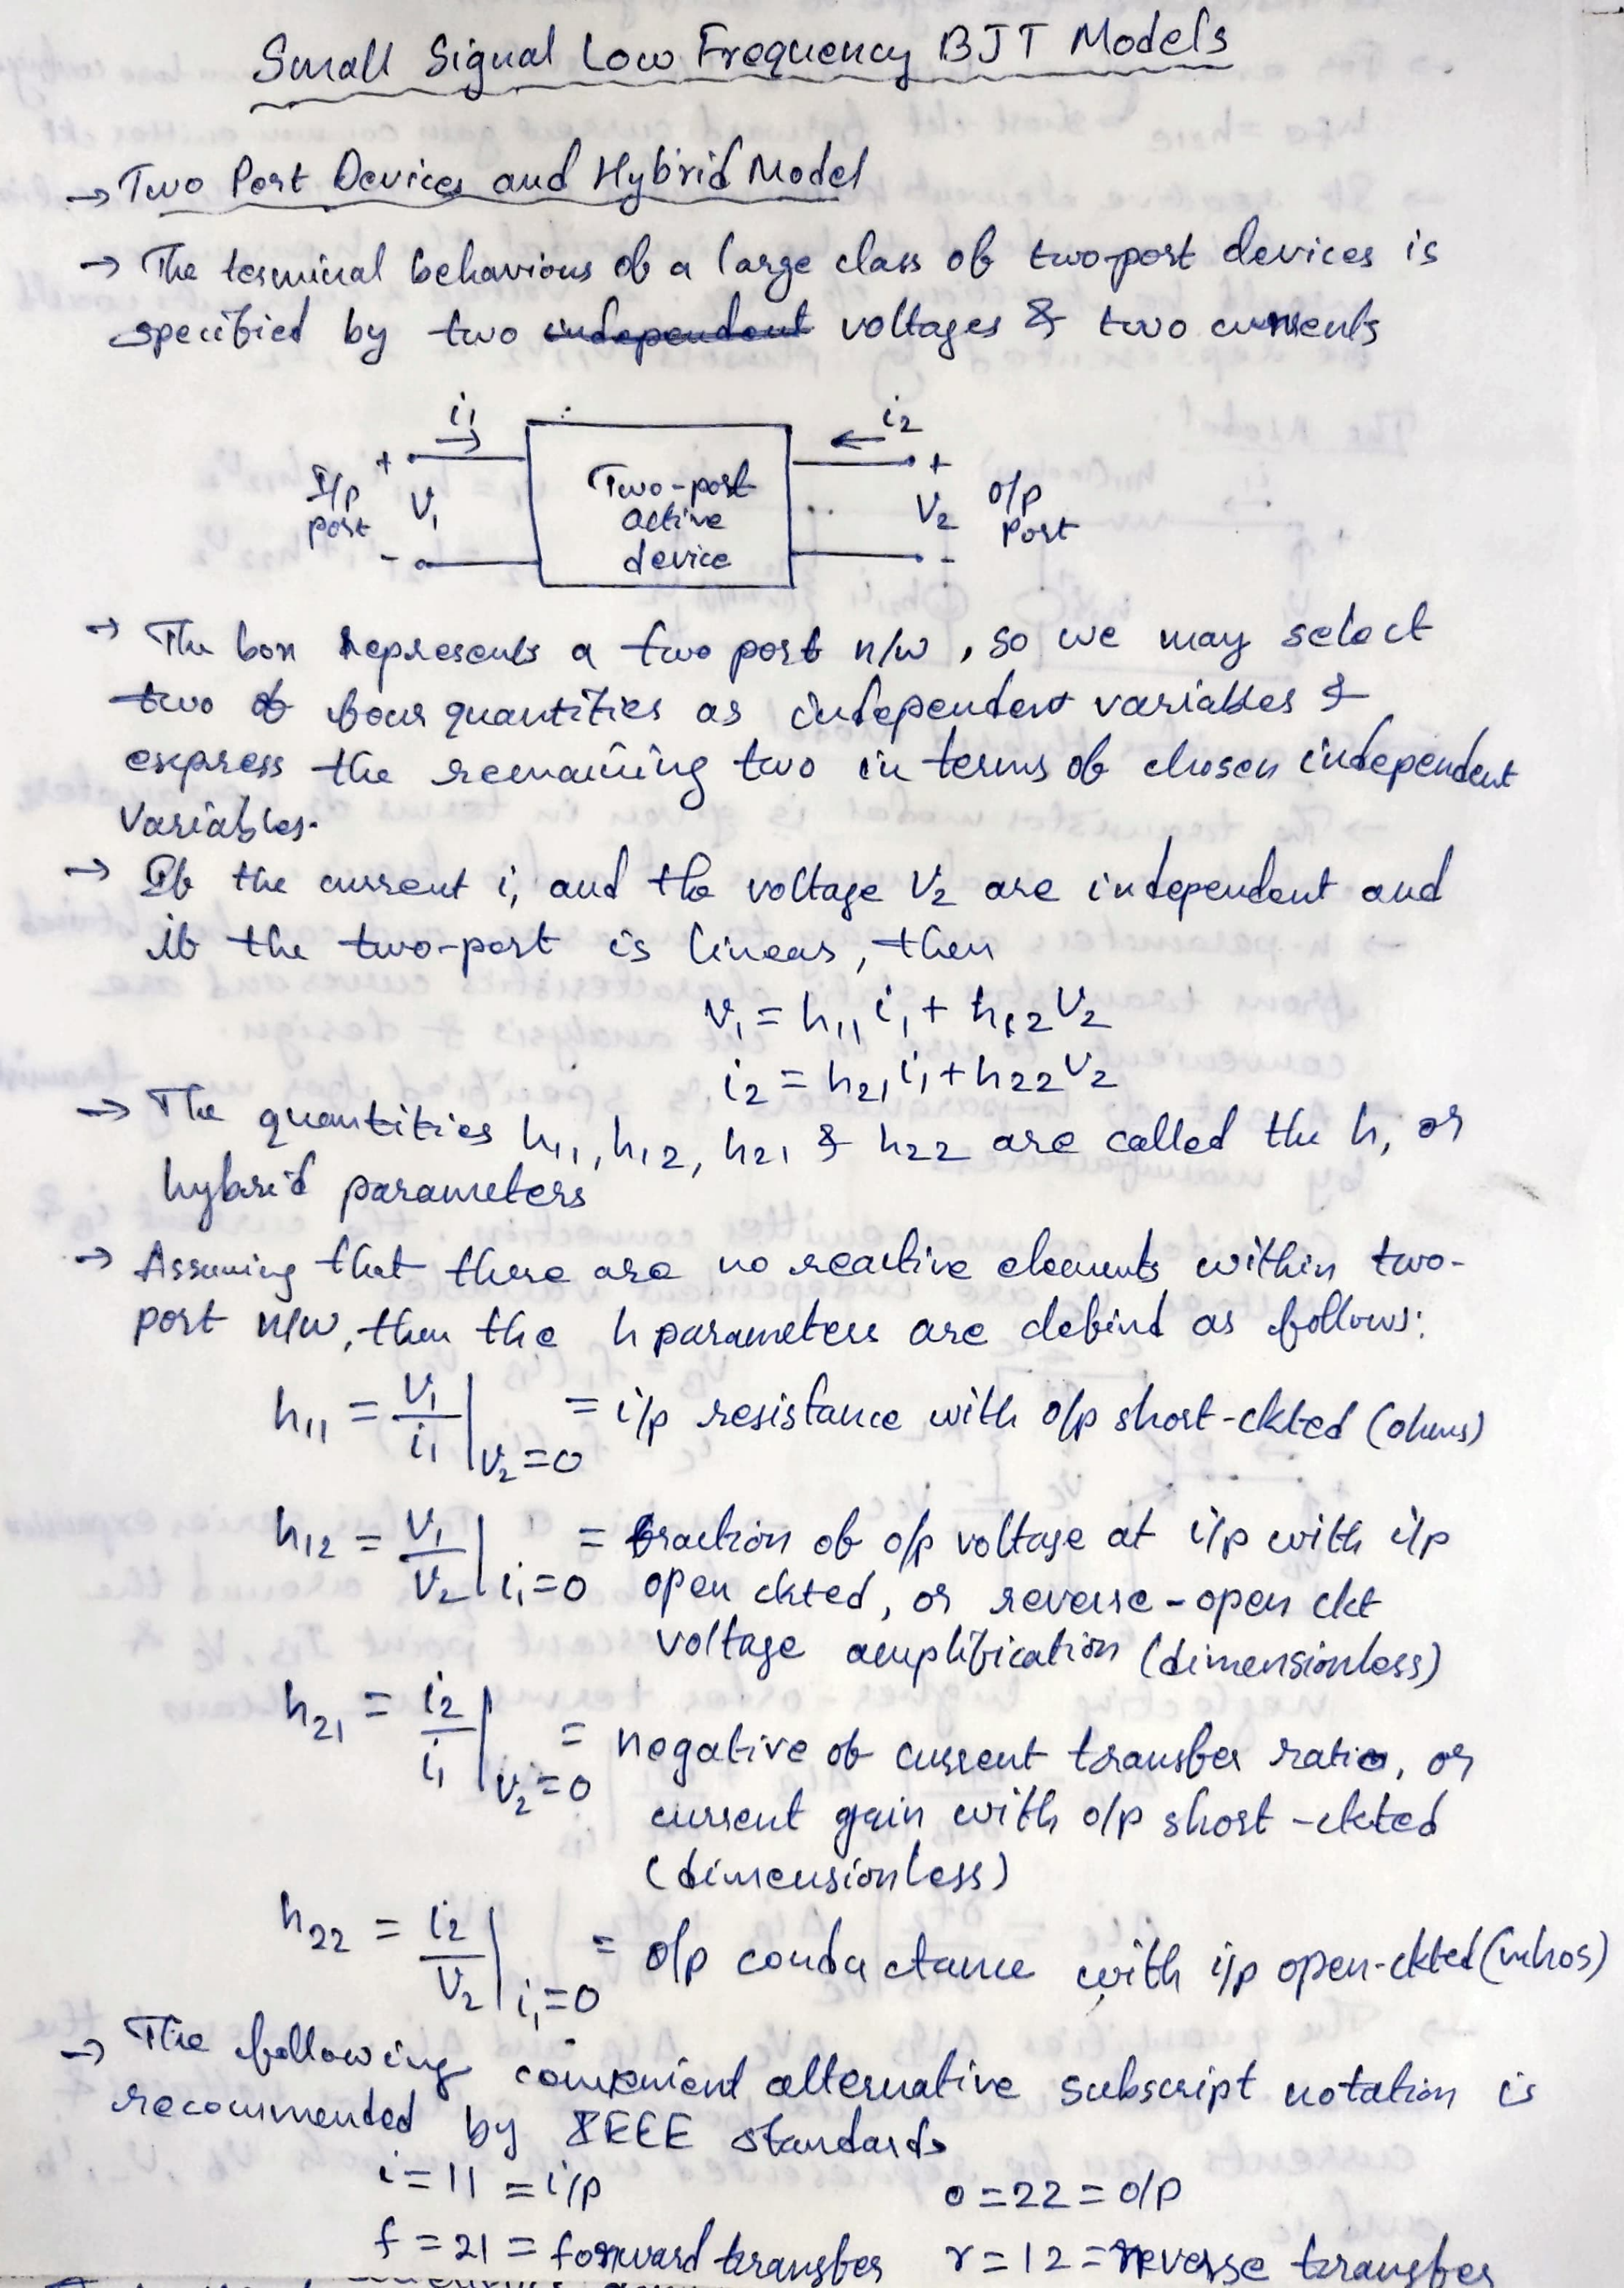 Small Signal Low Frequency BJT Models
→ Two Port Devices and Hybrid Model
→ The terminal behaviour of a large class of two-port devices is
specified by two independent voltages & two currents
i1
i2
+
+
I/p
port
V1
Two-port
active
device
V2
o/p
Port
-
-
→ The box represents a two port n/w, so we may select
two of four quantities as independent variables &
express the remaining two in terms of chosen independent
variables.
→ If the current i1 and the voltage V2 are independent and
if the two-port is linear, then
v1 = h11 i1 + h12 V2
i2 = h21 i1 + h22 V2
→ The quantities h11, h12, h21 & h22 are called the h, or
hybrid parameters
→ Assuming that there are no reactive elements within two-
port n/w, then the h parameters are defind as follows:
h11 = V1/i1 | V2=0 = i/p resistance with o/p short-ckted (ohms)
h12 = V1/V2 | i1=0 = fraction of o/p voltage at i/p with i/p
open ckted, or reverse-open ckt
voltage amplification (dimensionless)
h21 = i2/i1 | V2=0 = negative of current transfer ratio, or
current gain with o/p short-ckted
(dimensionless)
h22 = i2/V2 | i1=0 = o/p conductance with i/p open-ckted (mhos)
→ The following convenient alternative subscript notation is
recommended by IEEE standards
i = 11 = i/p o = 22 = o/p
f = 21 = forward transfer r = 12 = reverse transfer